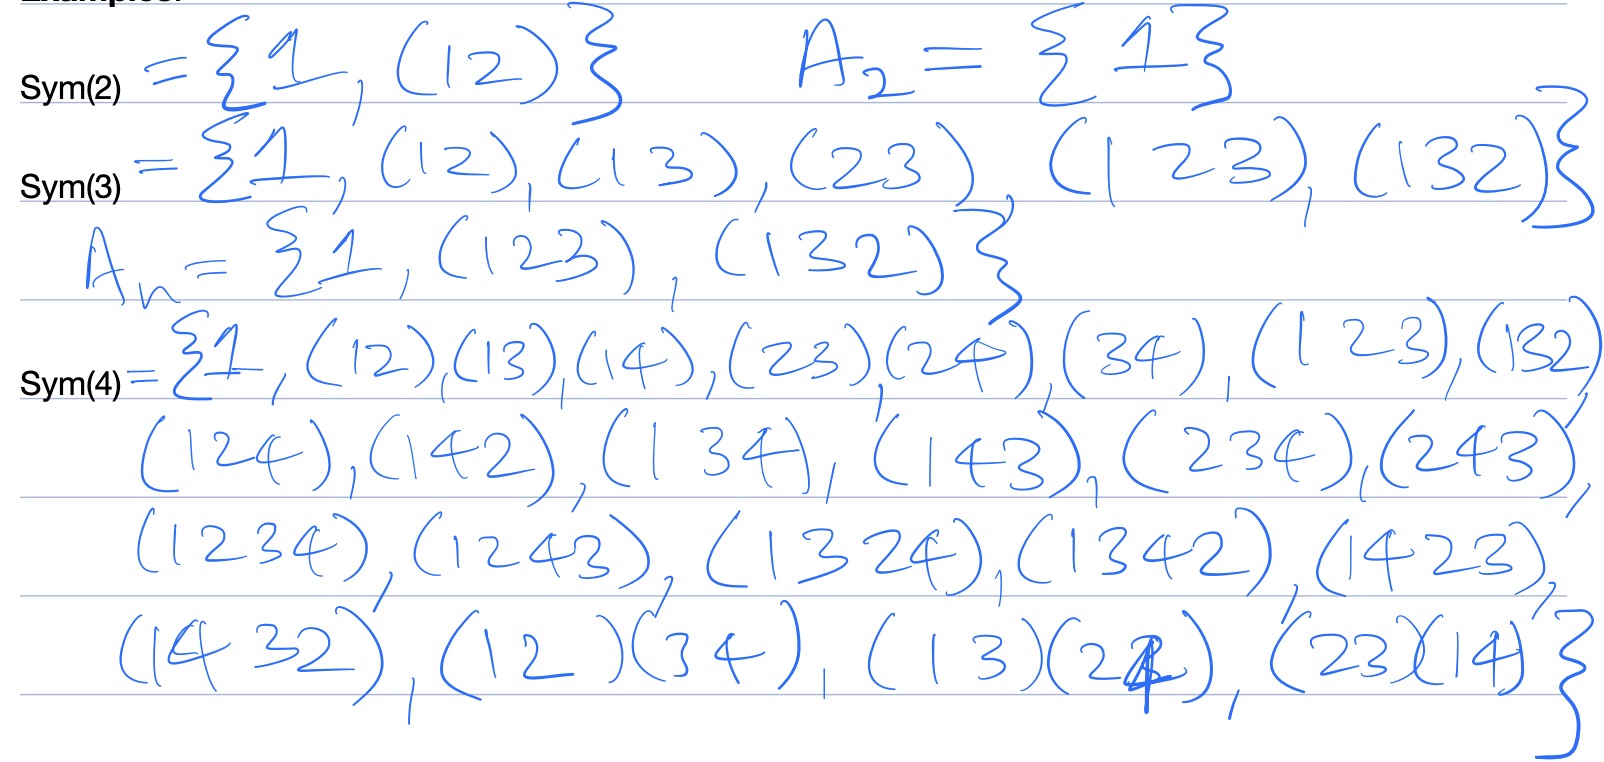 Examples:
Sym(2) = {1, (12)} A₂ = {1}
Sym(3) = {1, (12), (13), (23), (123), (132)}
Aₙ = {1, (123), (132)}
Sym(4) = {1, (12), (13), (14), (23), (24), (34), (123), (132),
(124), (142), (134), (143), (234), (243),
(1234), (1243), (1324), (1342), (1423),
(1432), (12)(34), (13)(24), (23)(14)}